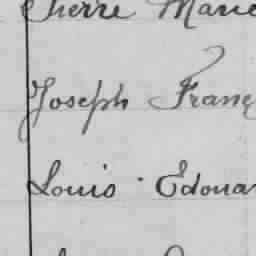 Pierre Marie
Joseph Franç
Louis Edoua